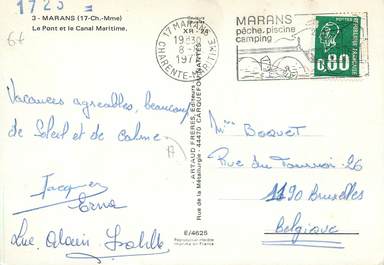 1723
3 - MARANS (17-Ch.-Mme)
Le Pont et le Canal Maritime.
64
Vacances agréables, beaucoup
de Soleil et de calme
Jacques
Erna
Luc, Alain, Isabelle
XR-2A
ARTAUD FRÈRES, Éditeurs
Rue de la Métallurgie - 44470 CARQUEFOU-NANTES
E/4625
Reproduction interdite
17 MARANS
19H30
8-
197
CHARENTE-MARITIME
MARANS
pêche, piscine
camping
POSTES
0,80
REPUBLIQUE FRANÇAISE
Mme Boquet
Rue du Tournoi - 26
1190 Bruxelles
Belgique